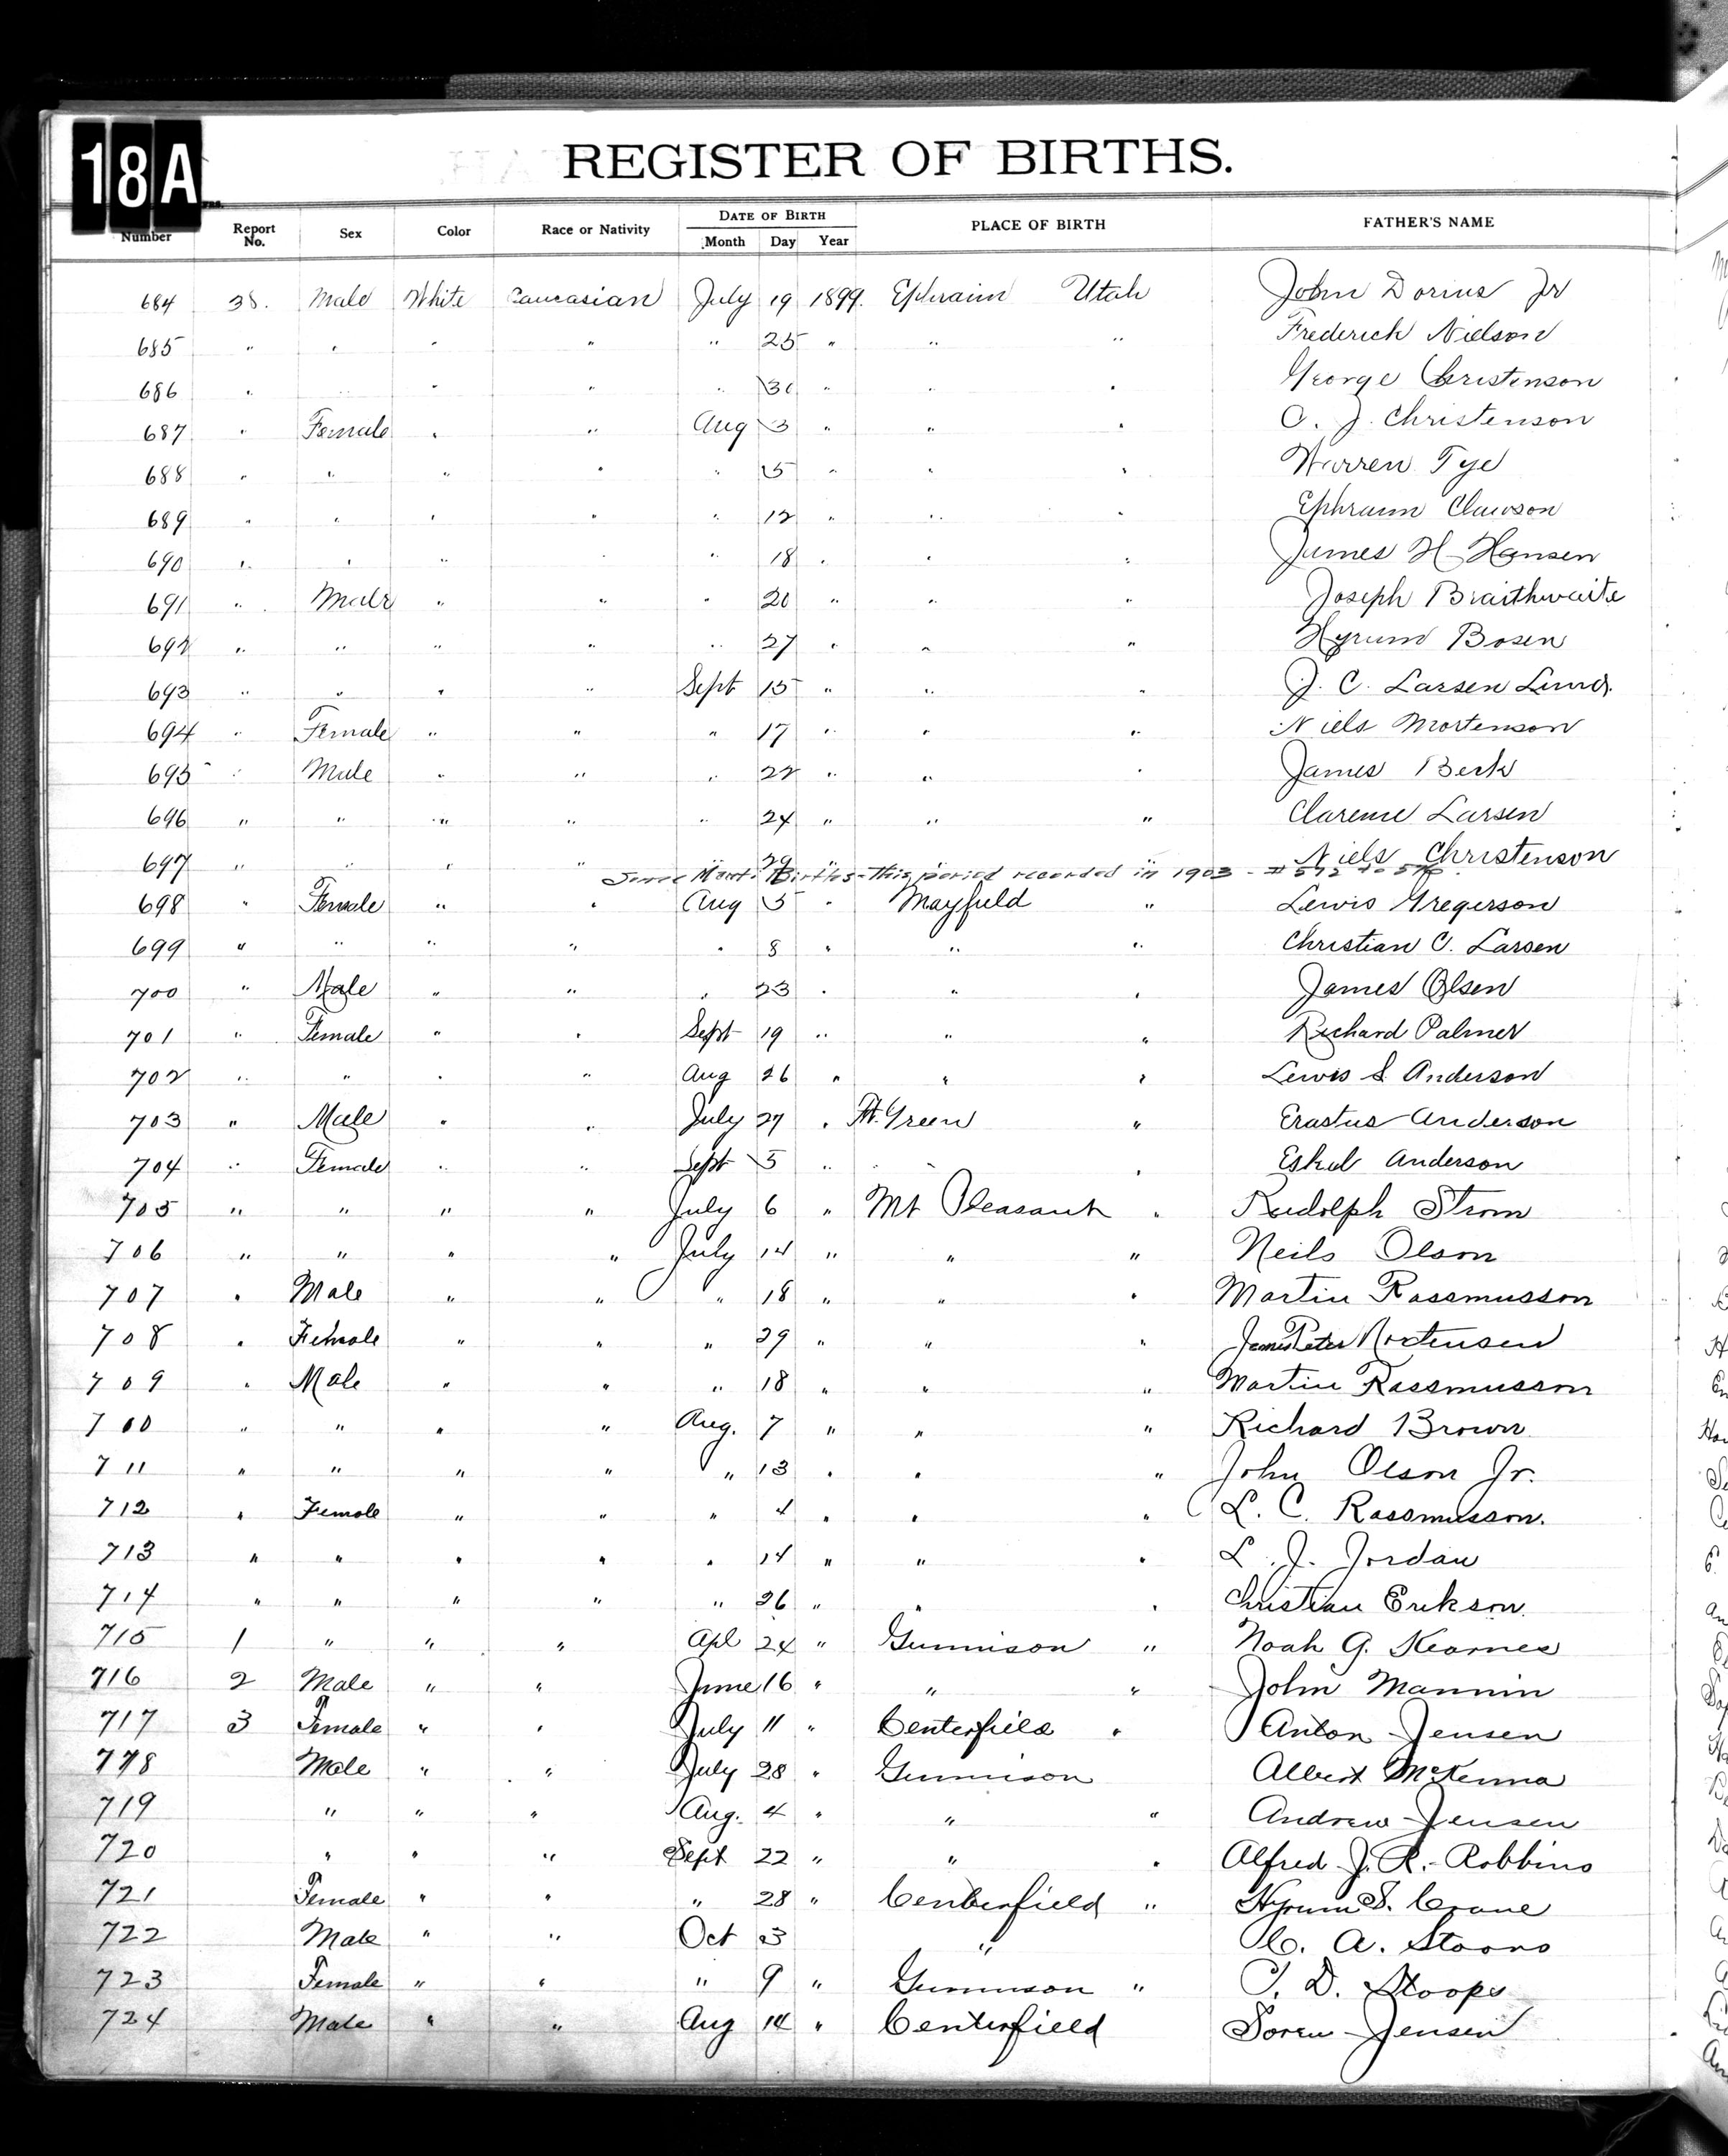 18A
REGISTER OF BIRTHS.
Number Report No. Sex Color Race or Nativity DATE OF BIRTH Month Day Year PLACE OF BIRTH FATHER'S NAME
684 38. Male White Caucasian July 19 1899. Ephraim Utah John Dorius Jr
685 " " " " " 25 " " " Frederick Nielson
686 " " " " " 30 " " " George Christenson
687 " Female " " Aug 3 " " " C. J. Christenson
688 " " " " " 5 " " " Warren Tye
689 " " " " " 12 " " " Ephraim Clawson
690 " " " " " 18 " " " James H Hansen
691 " Male " " " 20 " " " Joseph Braithwaite
692 " " " " " 27 " " " Hyrum Bosen
693 " " " " Sept 15 " " " J. C. Larsen Lund.
694 " Female " " " 17 " " " Niels Mortenson
695 " Male " " " 22 " " " James Beck
696 " " " " " 24 " " " Clarence Larsen
697 " " " " " 29 " " " Niels Christenson
Some Manti Births - This period recorded in 1903 - # 572 to 576.
698 " Female " " Aug 5 " Mayfield " Lewis Gregerson
699 " " " " " 8 " " " Christian C. Larsen
700 " Male " " " 23 " " " James Olsen
701 " Female " " Sept 19 " " " Richard Palmer
702 " " " " Aug 26 " " " Lewis S Anderson
703 " Male " " July 27 " Ft. Green " Erastus Anderson
704 " Female " " Sept 5 " " " Eskel Anderson
705 " " " " July 6 " Mt Pleasant " Rudolph Strom
706 " " " " July 14 " " " Neils Olson
707 " Male " " " 18 " " " Martin Rassmusson
708 " Female " " " 29 " " " James Peter Mortensen
709 " Male " " " 18 " " " Martin Rassmusson
710 " " " " Aug. 7 " " " Richard Brown
711 " " " " " 13 " " " John Olson Jr.
712 " Female " " " 4 " " " L. C. Rassmusson.
713 " " " " " 14 " " " L. J. Jordan
714 " " " " " 26 " " " Christian Erikson.
715 1 " " " Apl 24 " Gunnison " Noah G. Kearnes
716 2 Male " " June 16 " " " John Mannin
717 3 Female " " July 11 " Centerfield " Anton Jensen
718 Male " " July 28 " Gunnison Albert McKenna
719 " " " Aug. 4 " " " Andrew Jensen
720 " " " Sept 22 " " " Alfred J. R. Robbins
721 Female " " " 28 " Centerfield " Hyrum S. Crane
722 Male " " Oct 3 " C. A. Stoons
723 Female " " " 9 " Gunnison " T. D. Stoops
724 Male " " Aug 14 " Centerfield Soren Jensen